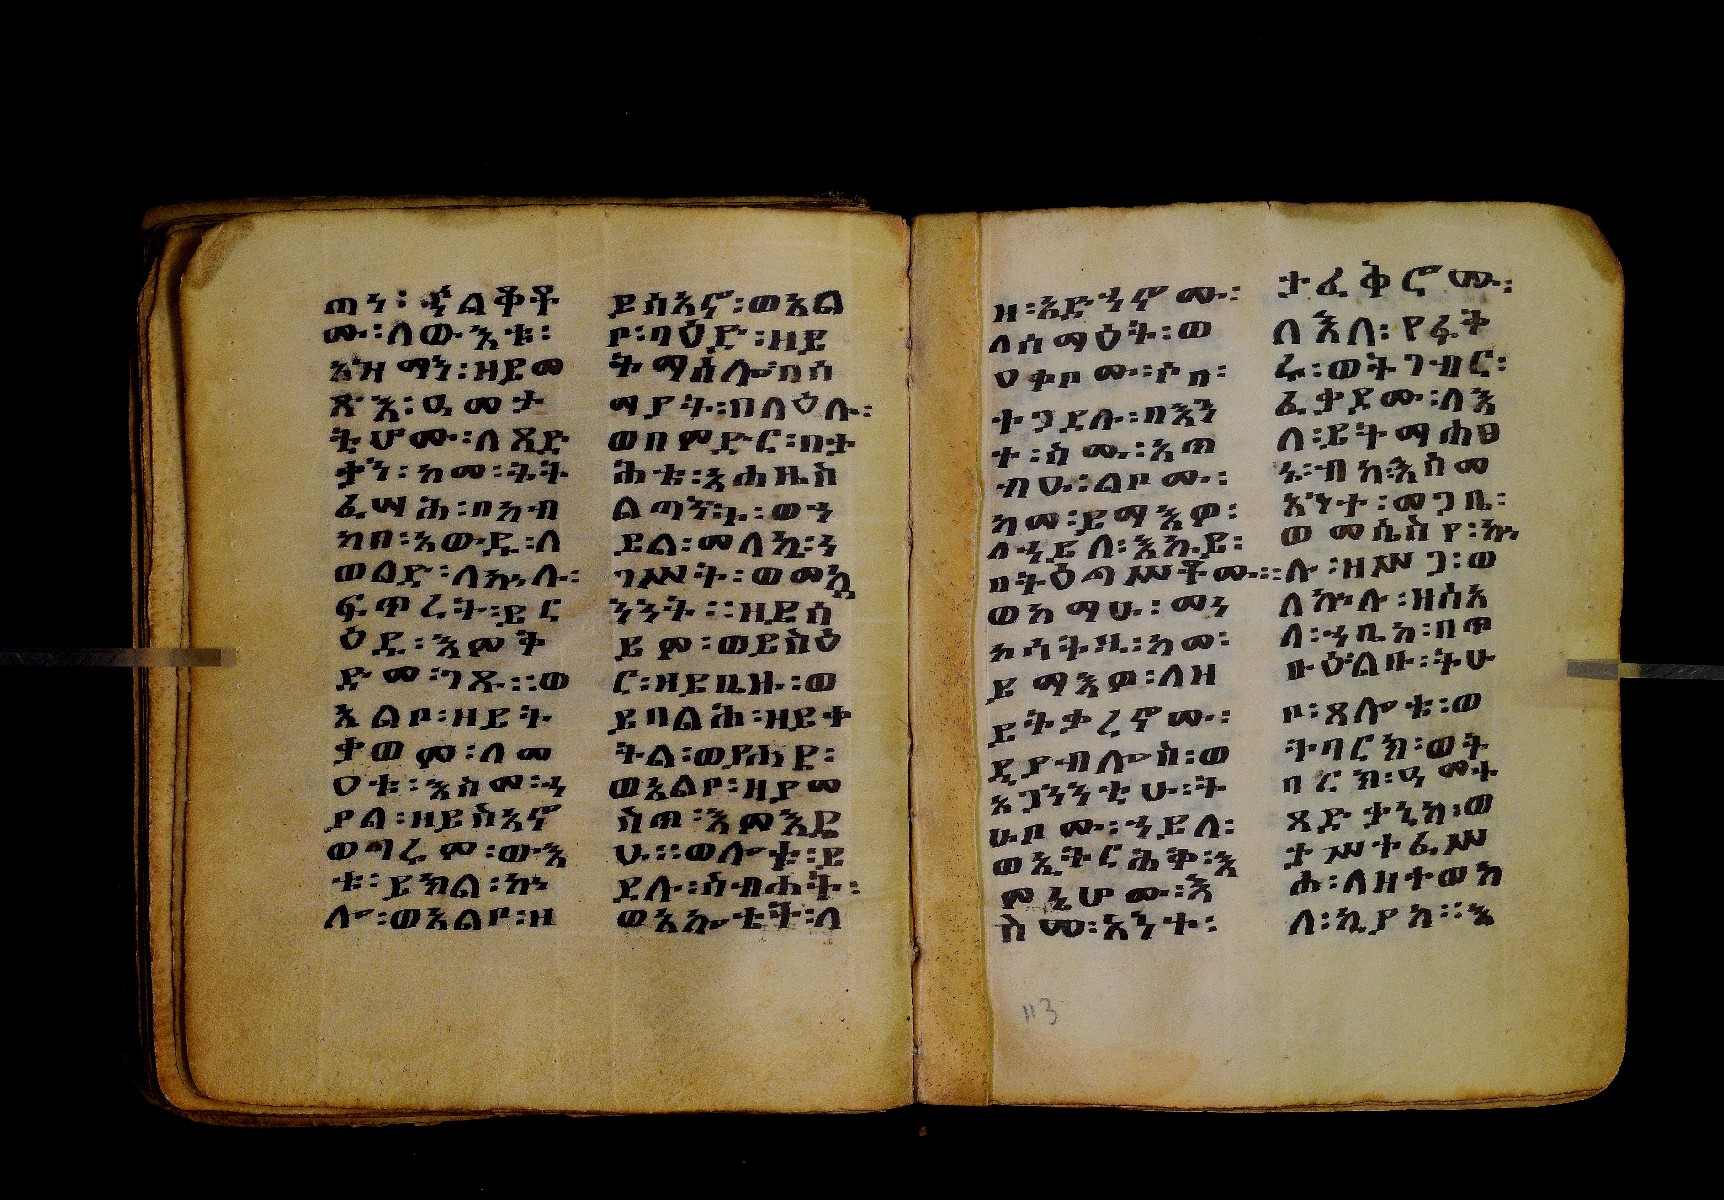 ጠን፡ ኃልቆቶ
ሙ፡ለውእቱ፡
አዝማን፡ዘይመ
ጽእ፡ዲመታ
ቲሆሙ፡ለጻድ
ቃን፡ከመ፡ትት
ፌሣሕ፡በአብ
ከበ፡አውዱ፡ለ
ወልድ፡ለኵሉ፡
ፍጥረት፡ይር
ዕዱ፡እምት
ድመ፡ገጹ።ወ
አልቦ፡ዘይት
ቃወም፡ለመ
ዐቱ፡እስመ፡ኃ
ያል፡ዘይስእኖ
ወግሩም፡ውእ
ቱ፡ይክል፡ኵ
ሎ፡ወአልቦ፡ዘ
ይሰአኖ፡ወአል
ቦ፡ባዕድ፡ዘይ
ትማሰሎ፡በሰ
ማያት፡በላዕሉ፡
ወበምድር፡በታ
ሕቱ፡እሐዜስ
ልጣን፡ት፡ወኃ
ይል፡መለኪ፡ን
ግሥት፡ወመኳ
ንንት፡፡ዘይሰ
ይም፡ወይስዕ
ር፡ዘይቤዙ፡ወ
ይባልሕ፡ዘይቀ
ትል፡ወያሐዩ፡
ወአልቦ፡ዘያመ
ስጦ፡እምእዴ
ሁ፡፡ወሎቱ፡ይ
ደሉ፡ስብሐት፡
ወአኰቴት፡ለ
ዘ፡አድኃኖሙ፡
ለሰማዕት፡ወ
ዐቀቦሙ፡ሶበ፡
ተጋደሉ፡በእን
ተ፡ስሙ፡አጠ
ብዑ፡ልቦሙ፡
ከመ፡ይማእዎ፡
ለኃይለ፡እኪይ፡
በትዕግሥቶሙ።
ወአማሁ፡መን
ከሳትዚ፡ከመ፡
ይማእዎ፡ለዘ
ይትቃረኖሙ፡
ዲያብሎስ፡ወ
አጋንንቲሁ፡ት
ሁቦሙ፡ኃይለ፡
ወኢትርሕቅ፡እ
ምኔሆሙ፡እ
ስመ፡አንተ፡
ታፈቅሮሙ፡
ለእለ፡የፈቅ
ሩ፡ወትገብር፡
ፈቃዶሙ፡ለእ
ለ፡ይትማሐፀ
ኑ፡ብከ፡እስመ
አንተ፡መጋቢ፡
ወመሴስየ፡ኵ
ሉ፡ዘሥጋ፡ወ
ለኵሉ፡ዘሰአ
ለ፡ኀቤከ፡በጥ
ቡዕ፡ልቡ፡ትሁ
ቦ፡ጸሎቱ፡ወ
ትባርክ፡ወት
ባርክ፡ዲመተ
ጻድቃኒከ፡ወ
ታሥተፌሥ
ሐ፡ለዘተወከ
ለ፡ኪያከ፡፡እ
113